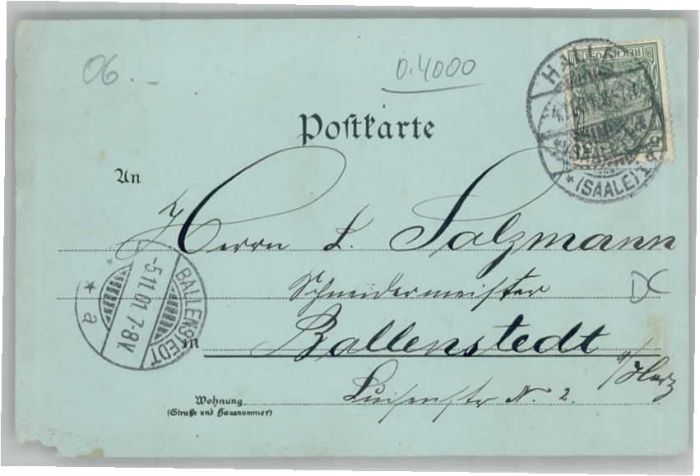 06.
0.4000
HALLE
*(SAALE)*
Postkarte
An
Herrn L. Salzmann
Schneidermeister
DC
BALLENSTEDT
-5.11.01.7-8V.
* a *
in Ballenstedt
a/Harz
Luisenstr N. 2.
Wohnung
(Straße und Hausnummer)